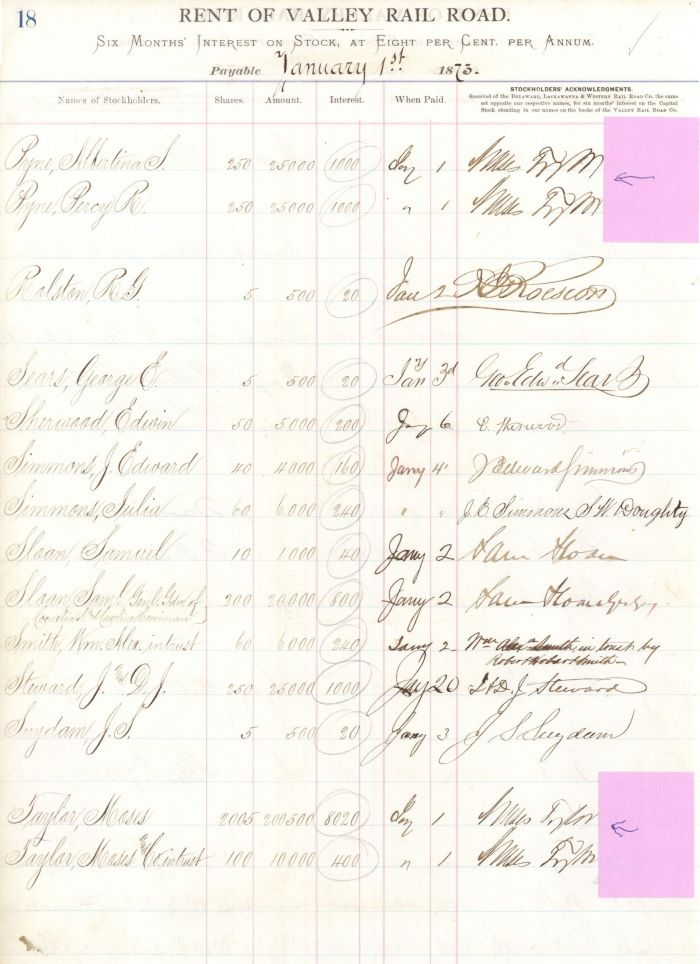 18
RENT OF VALLEY RAIL ROAD.
SIX MONTHS' INTEREST ON STOCK, AT EIGHT PER CENT. PER ANNUM.
Payable January 1st 1873.
Names of Stockholders. Shares. Amount. Interest. When Paid. STOCKHOLDERS' ACKNOWLEDGMENTS.
Received of the DELAWARE, LACKAWANNA & WESTERN RAIL ROAD Co. the sums
set opposite our respective names, for six months' interest on the Capital
Stock standing in our names on the books of the VALLEY RAIL ROAD Co.
Pyne, Albertina S. 250 25000 1000 Jany 1
Pyne, Percy R. 250 25000 1000 " 1
Ralston, R. G. 5 500 20 Jan 2
Sears, George E. 5 500 20 Jany 3d Geo. Edwd Sears
Sherwood, Edwin 50 5000 200 Jany 6 E. Sherwood
Simmons, J. Edward 40 4000 160 Jany 4 J Edward Simmons
Simmons, Julia 60 6000 240 " " J. E Simmons S. W. Doughty
Sloan, Samuel 10 1000 40 Jany 2 Sam Sloan
Sloan, Saml. Genl. Gdn of 200 20,000 800 Jany 2 Sam Sloan
Smith, Wm. Alex. in trust 60 6000 240 Jany 2 Wm Alexr Smith in trust by
Robert Hobart Smith
Steward, J. & D. J. 250 25000 1000 Jany 20 J & D. J Steward
Suydam, J. S. 5 500 20 Jany 3 J S Suydam
Taylor, Moses 2005 200,500 8020 Jany 1 Moses Taylor
Taylor, Moses & Co. in trust 100 10,000 400 " 1 Moses Taylor